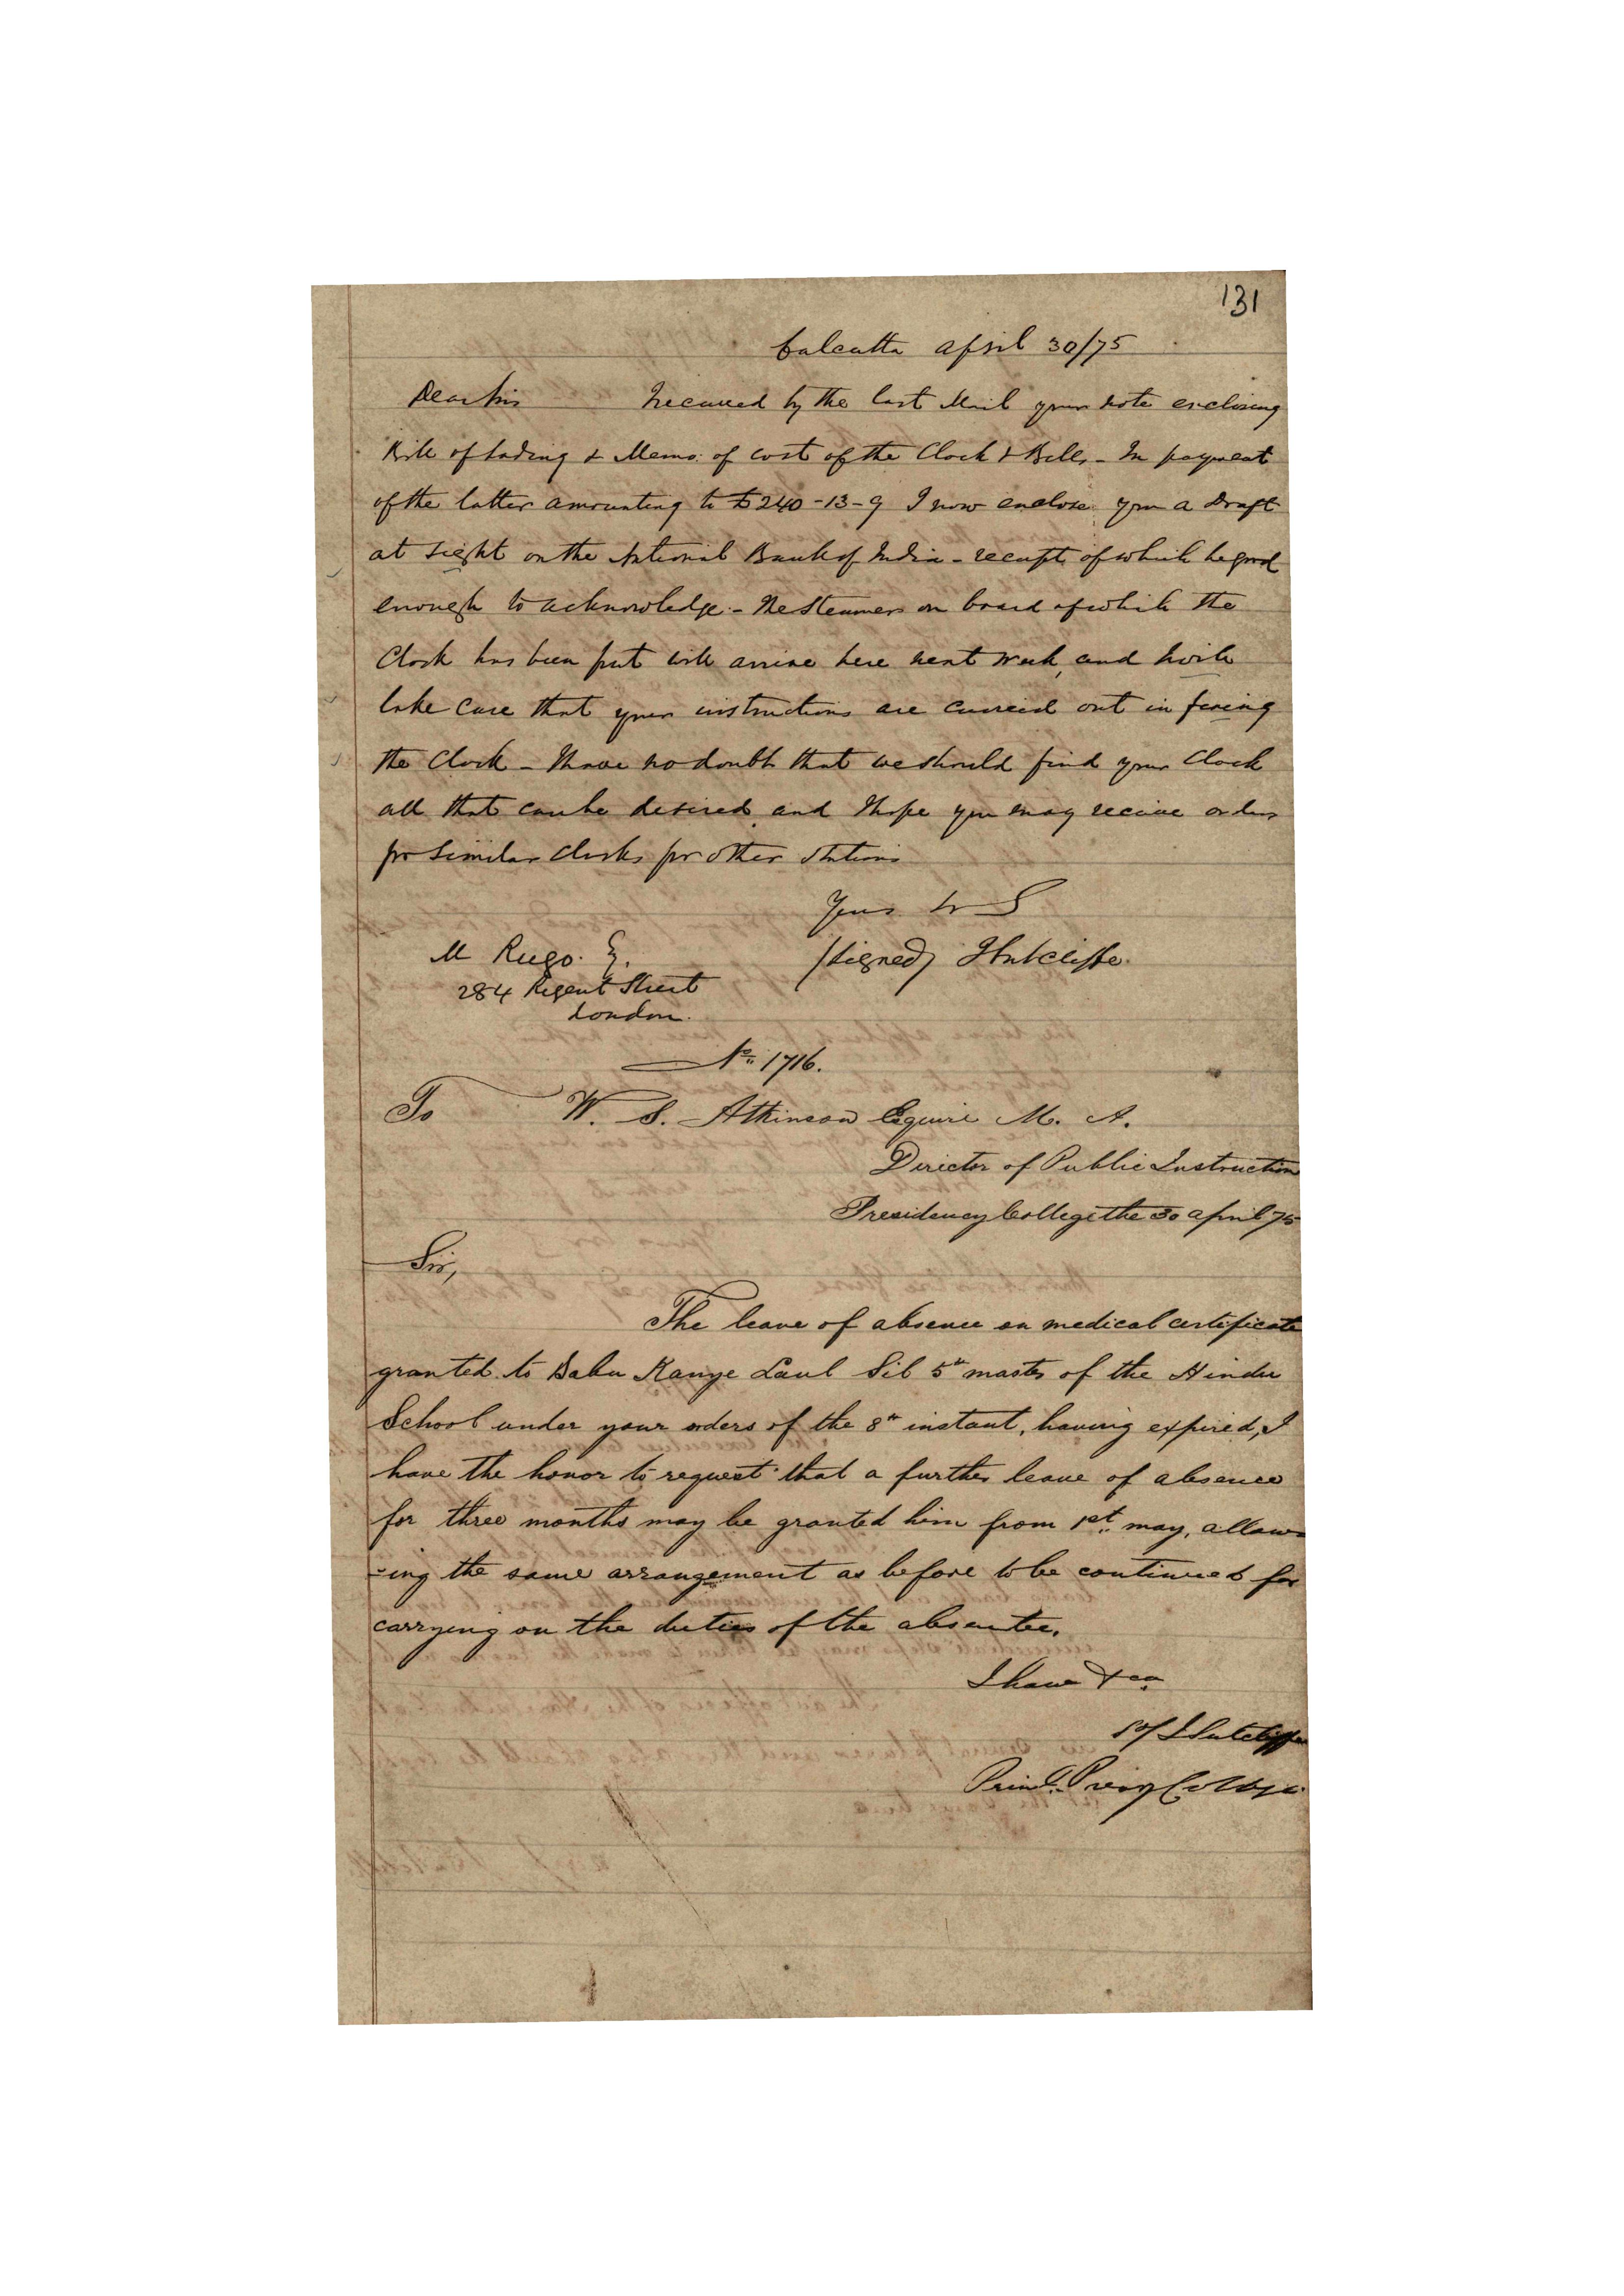 131
Calcutta April 30/75
Dear Sir I received by the last Mail your note enclosing
Bill of Lading & Memo: of cost of the Clock & Bells - In payment
of the latter amounting to £240-13-9 I now enclose you a Draft
at sight on the National Bank of India - receipt of which be good
enough to acknowledge. - The Steamer on board of which the
Clock has been put will arrive here next week, and I will
take care that your instructions are carried out in fixing
the Clock - I have no doubt that we should find your Clock
all that can be desired and I hope you may receive orders
for similar clocks for other stations
Yours
(Signed) J Sutcliffe
284 Regent Street
London.
No. 1716.
To W. S. Atkinson Esquire M. A.
Director of Public Instruction
Presidency College the 30 April 75
Sir,
The leave of absence on medical certificate
granted to Babu Kanye Laul Sil 5th master of the Hindu
School under your orders of the 8th instant, having expired, I
have the honor to request that a further leave of absence
for three months may be granted him from 1st. may, allow
-ing the same arrangement as before to be continued for
carrying on the duties of the absentee.
I have &ca
Sd/ J Sutcliffe
Prinl. Presy College.